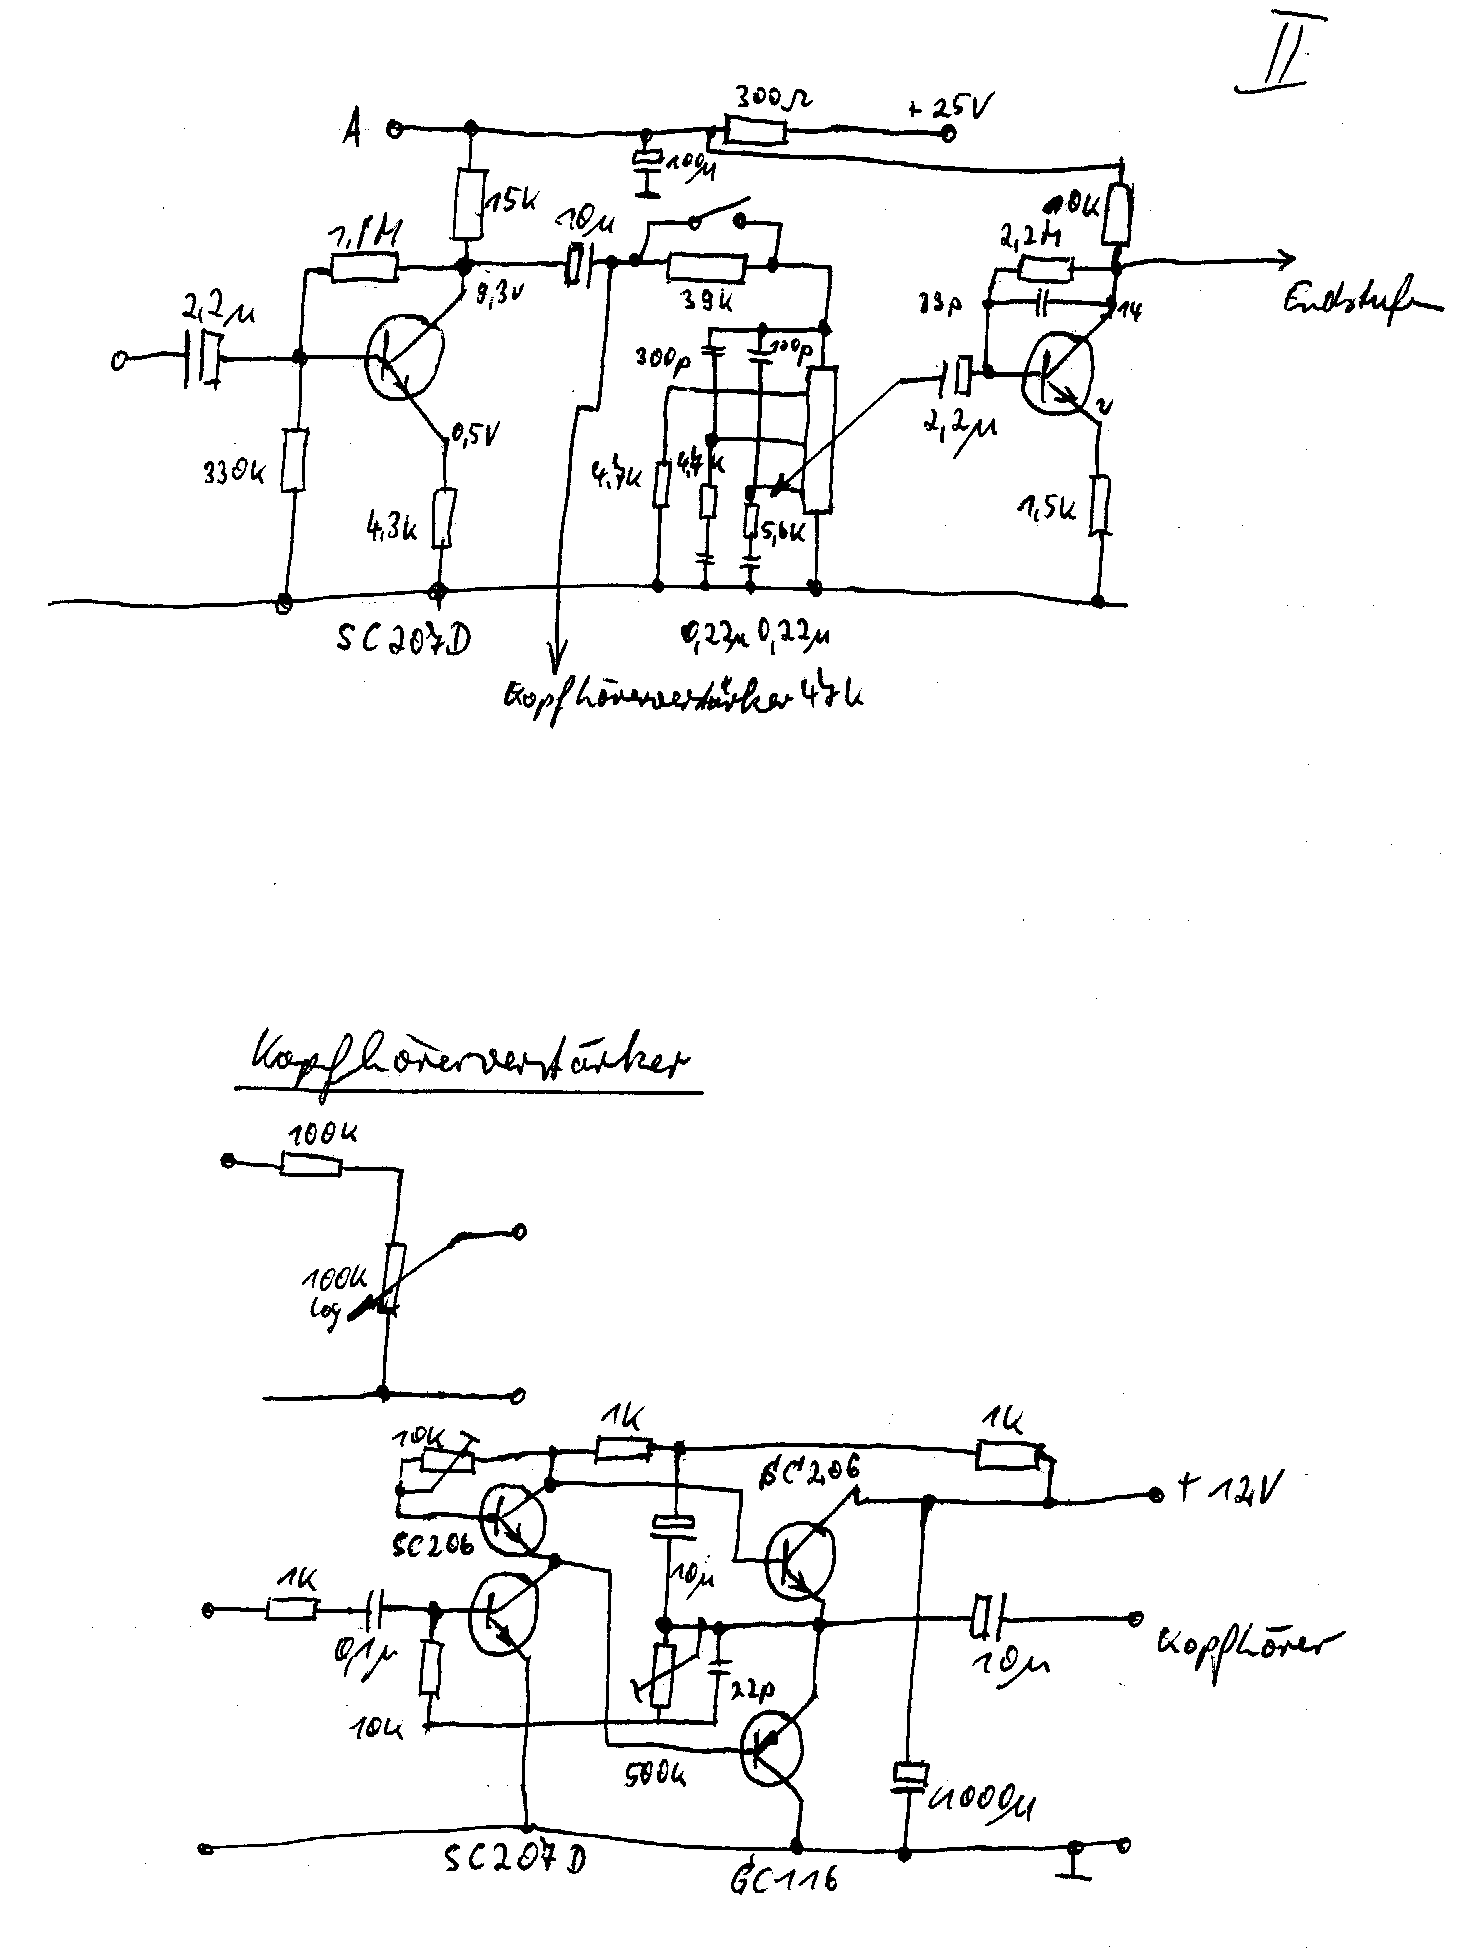 II
300Ω
+ 25V
A
100µ
15k
10µ
10k
1,1M
2,2M
9,3V
39k
33p
14
Endstufe
2,2µ
300p
100p
2,2µ
0,5V
330k
4,7k
4,7k
4,3k
5,6k
1,5k
SC207D
0,22µ 0,22µ
Kopfhörerverstärker 47k
Kopfhörerverstärker
100k
100k
log
10k
1k
1k
SC206
+ 12V
SC206
1k
10µ
0,1µ
10µ
Kopfhörer
22p
10k
500k
1000µ
SC207D
GC116